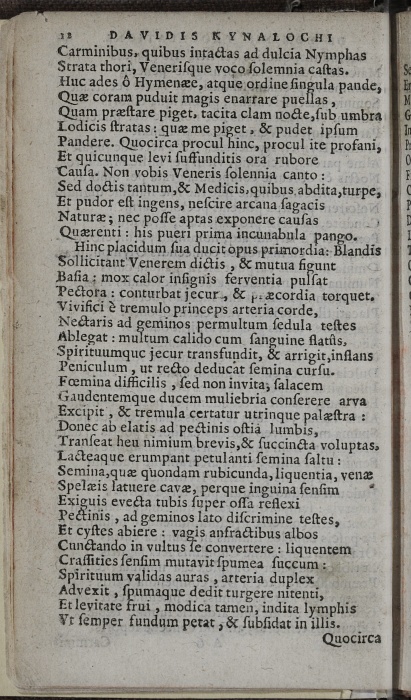 28 DAVIDIS KYNALOCHI
Carminibus, quibus intactas ad dulcia Nymphas
Strata thori, Venerisque voco solemnia castas.
Huc ades ô Hymenæe, atque ordine singula pande,
Quæ coram puduit magis enarrare puellas,
Quam præstare piget, tacita clam nocte, sub umbra
Lodicis stratas: quæ me piget, & pudet ipsum
Pandere. Quocirca procul hinc, procul ite profani,
Et quicunque levi suffunditis ora rubore
Causa. Non vobis Veneris solennia canto:
Sed doctis tantum, & Medicis, quibus abdita, turpe,
Et pudor est ingens, nescire arcana sagacis
Naturæ; nec posse aptas exponere causas
Quærenti: his pueri prima incunabula pango.
Hinc placidum sua ducit opus primordia: Blandis
Sollicitant Venerem dictis, & mutua figunt
Basia: mox calor insignis ferventia pulsat
Pectora: conturbat jecur, & præcordia torquet.
Vivifici è tremulo princeps arteria corde,
Nectaris ad geminos permultum sedula testes
Ablegat: multum calido cum sanguine flatûs,
Spirituumque jecur transfundit, & arrigit, inflans
Peniculum, ut recto deducat semina cursu.
Fœmina difficilis, sed non invita; salacem
Gaudentemque ducem muliebria conserere arva
Excipit, & tremula certatur utrinque palæstra:
Donec ab elatis ad pectinis ostia lumbis,
Transeat heu nimium brevis, & succincta voluptas,
Lacteaque erumpant petulanti semina saltu:
Semina, quæ quondam rubicunda, liquentia, venæ
Spelæis latuere cavæ, perque inguina sensim
Exiguis evecta tubis super ossa reflexi
Pectinis, ad geminos lato discrimine testes,
Et cystes abiere: vagis anfractibus albos
Cunctando in vultus se convertere: liquentem
Crassities sensim mutavit spumea succum:
Spirituum validas auras, arteria duplex
Advexit, spumaque dedit turgere nitenti,
Et levitate frui, modica tamen, indita lymphis
Vt semper fundum petat, & subsidat in illis.
Quocirca